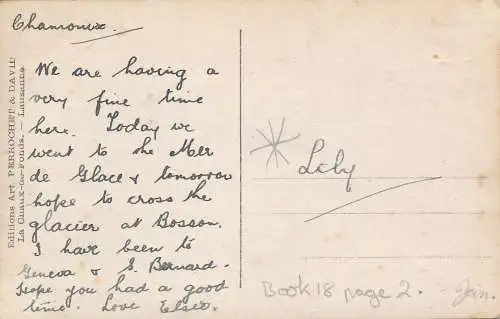 Chamonix.
We are having a
very fine time
here. Today we
went to the Mer
de Glace & tomorrow
hope to cross the
glacier at Bosson.
I have been to
Geneva & S. Bernard.
Hope you had a good
time. Love Elsie.
Editions Art. PERROCHET & DAVID
La Chaux-de-Fonds. — Lausanne
Lily
Book 18 page 2.
Jan.